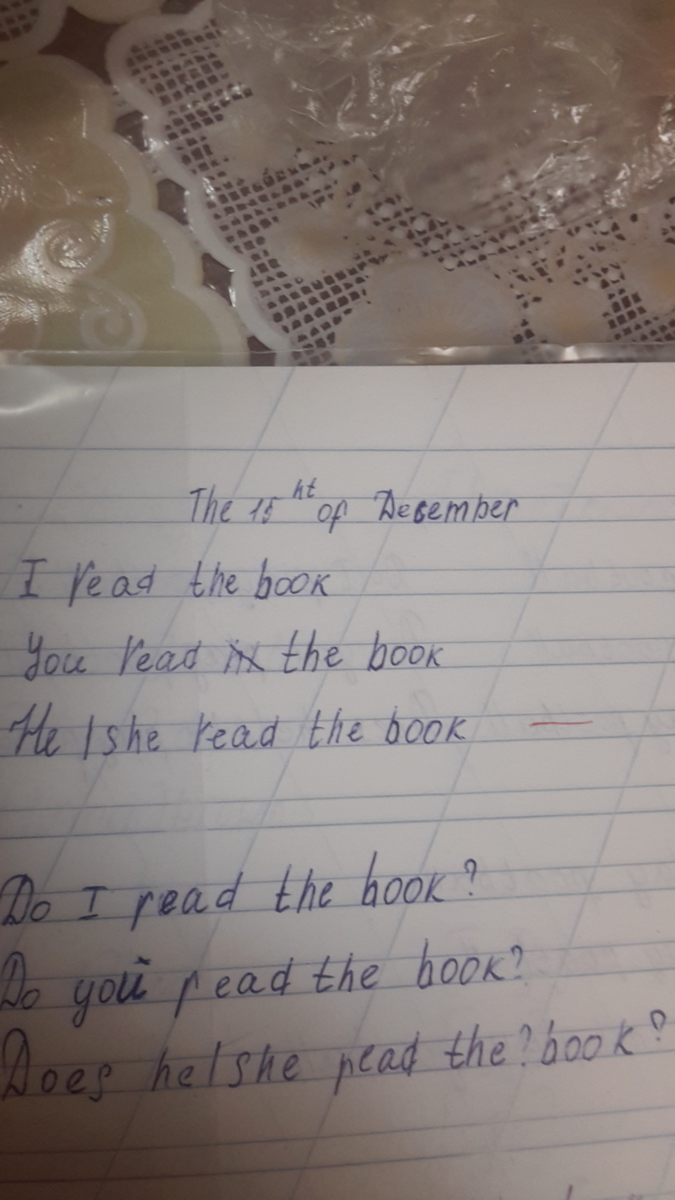 The 15 ht of December
I read the book
You read the book
He / she read the book
Do I read the book?
Do you read the book?
Does he / she read the? book?